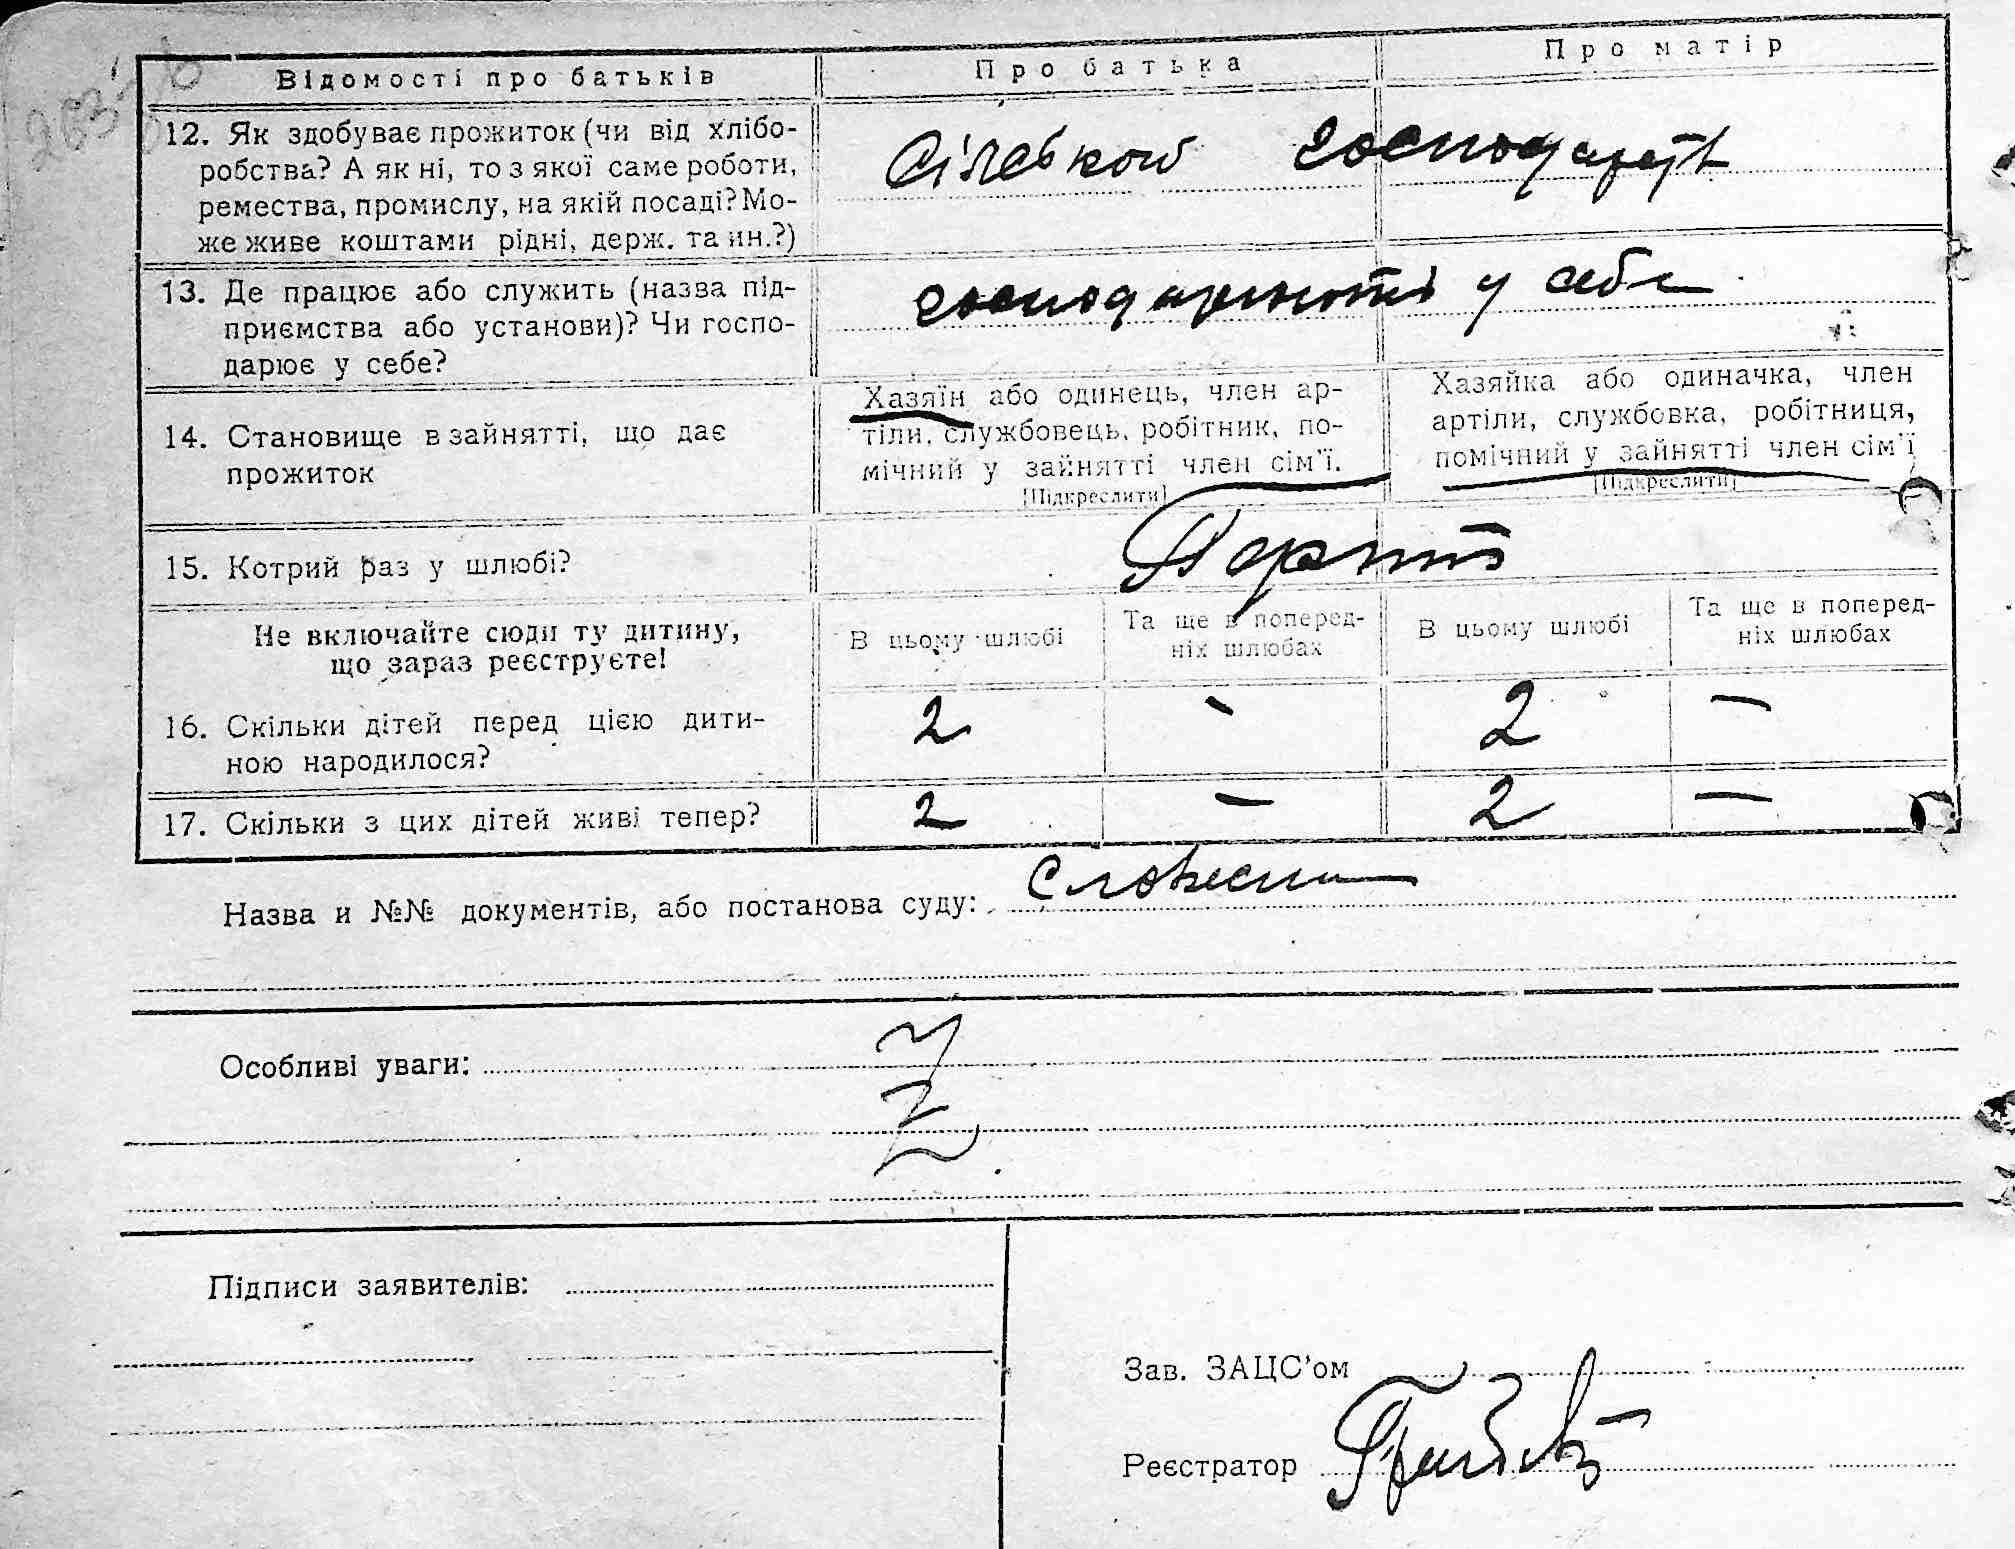 Відомості про батьків
Про батька
Про матір
12. Як здобуває прожиток (чи від хлібо-
робства? А як ні, то з якої саме роботи,
ремества, промислу, на якій посаді? Мо-
же живе коштами рідні, держ. та ин.?)
Сільськом господарств
13. Де працює або служить (назва під-
приємства або установи)? Чи госпо-
дарює у себе?
у себе
14. Становище в зайнятті, що дає
прожиток
Хазяїн або одинець, член ар-
тіли, службовець, робітник, по-
мічний у зайнятті член сім'ї.
[Підкреслити]
Хазяйка або одиначка, член
артіли, службовка, робітниця,
помічний у зайнятті член сім'ї
[Підкреслити]
15. Котрий раз у шлюбі?
Не включайте сюди ту дитину,
що зараз реєструєте!
В цьому шлюбі
Та ще в поперед-
ніх шлюбах
В цьому шлюбі
Та ще в поперед-
ніх шлюбах
16. Скільки дітей перед цією дити-
ною народилося?
2 - 2 -
17. Скільки з цих дітей живі тепер?
2 - 2 -
Назва и №№ документів, або постанова суду:
Особливі уваги:
Підписи заявителів:
Зав. ЗАЦС'ом
Реєстратор